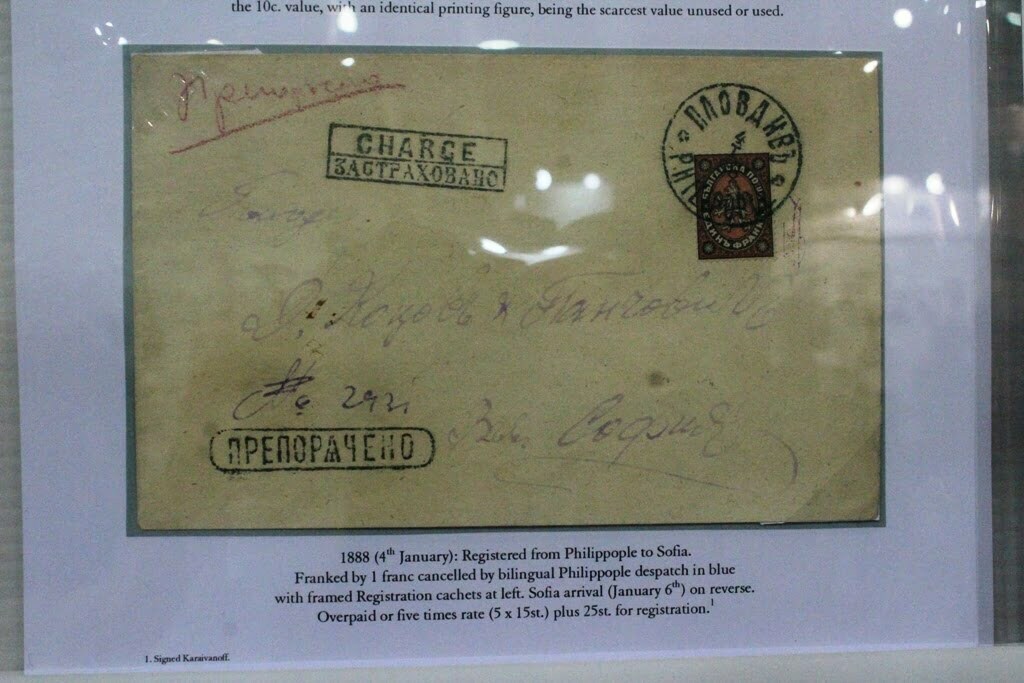 the 10c. value, with an identical printing figure, being the scarcest value unused or used.
Препоръчено
CHARGE
ЗАСТРАХОВАНО
ПЛОВДИВЪ
БЪЛГАРСКА ПОЩА
ЕДИНЪ ФРАНК
№ 2421
ПРЕПОРѪЧЕНО
София
1888 (4th January): Registered from Philippople to Sofia.
Franked by 1 franc cancelled by bilingual Philippople despatch in blue
with framed Registration cachets at left. Sofia arrival (January 6th) on reverse.
Overpaid or five times rate (5 x 15st.) plus 25st. for registration.1
1. Signed Karaivanoff.